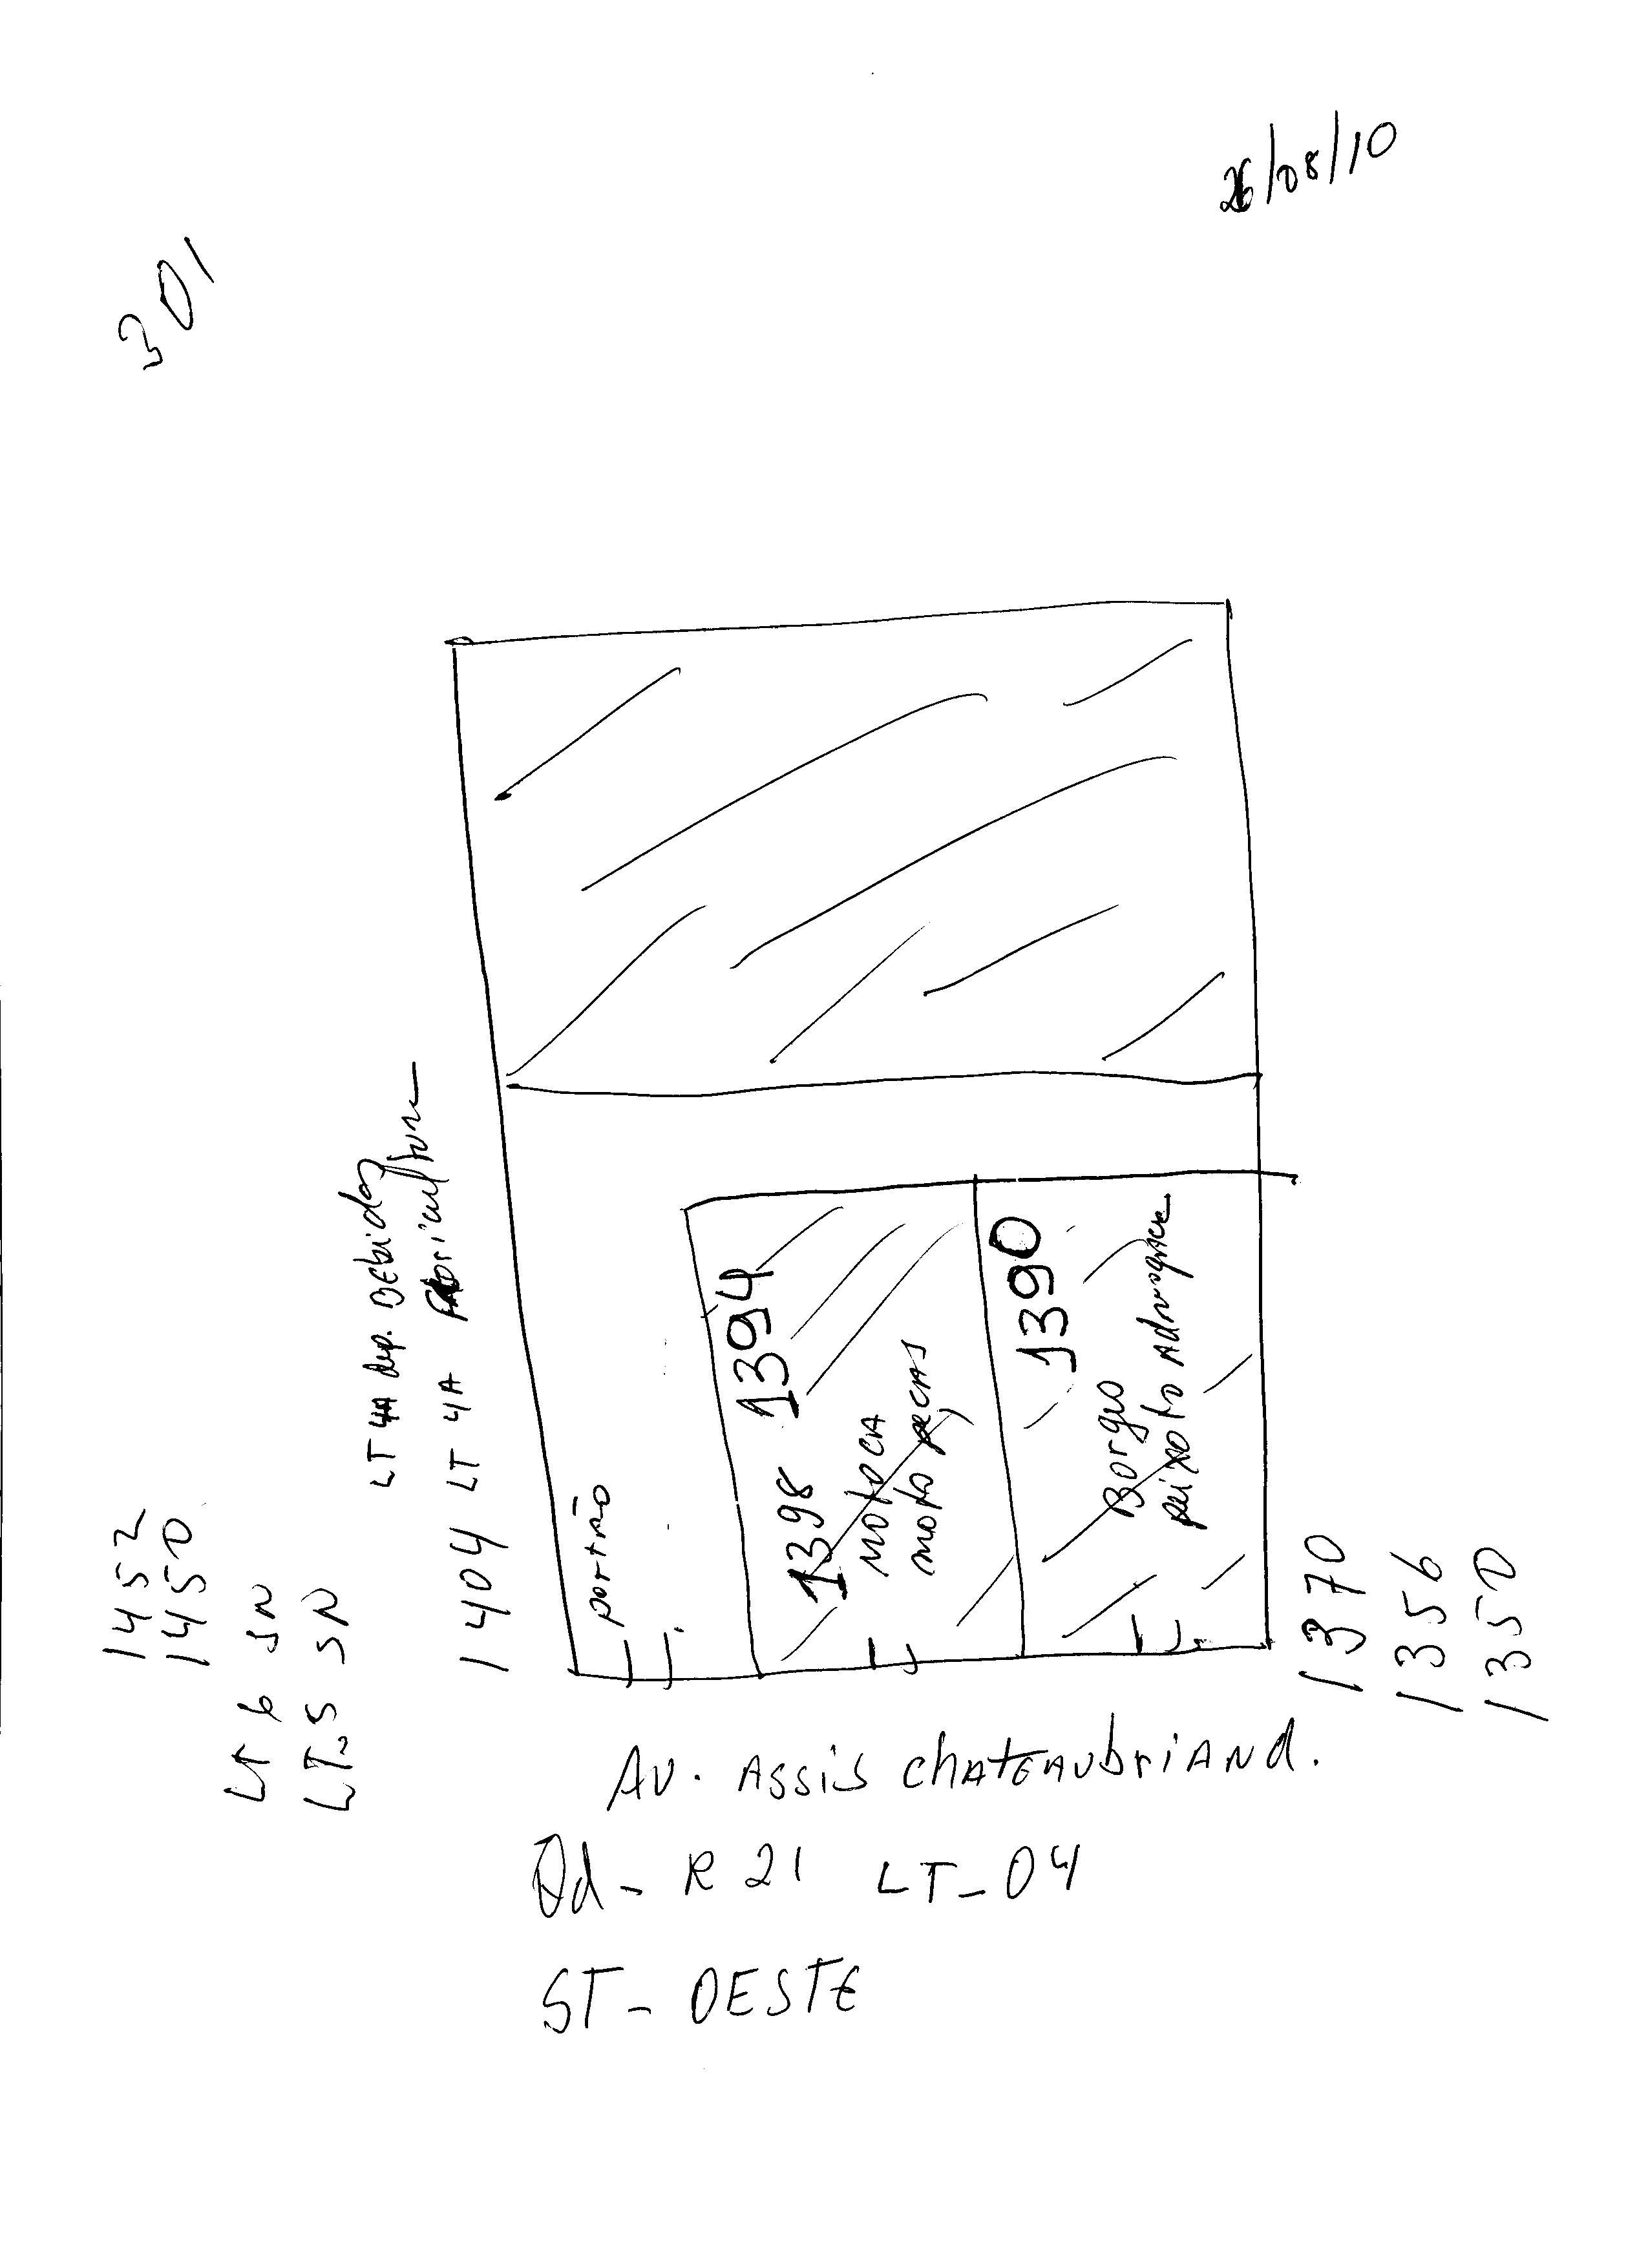 26/08/10
301
1452
1450
LT 6 SN
LT-5 SN
LT 4A dep. Bebidas
1404 LT 4A
portão
1398 1394
MOTOCA
moto peças
1390
Borges
peixoto Advogacia
1370
1356
1350
AV. ASSIS chATEAUbriANd.
Qd - R 21 LT - 04
ST - OESTE